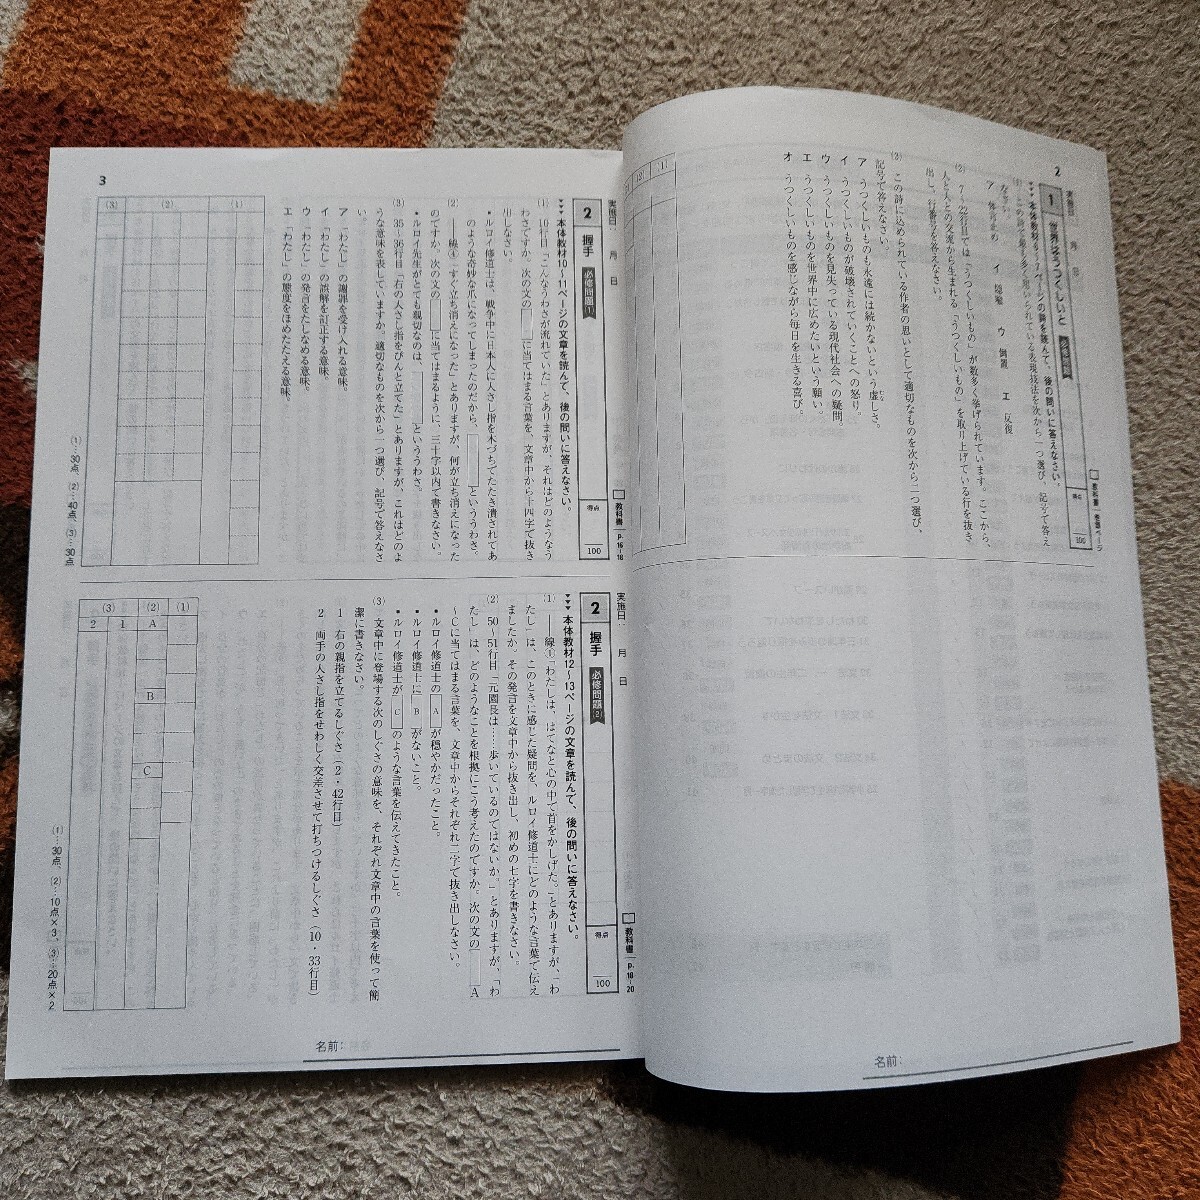 2
実施日: 月 日
1 世界はうつくしいと 必修問題
得点
100
▼▼▼本体教材
ページの詩を読んで、後の問いに答えなさい。
ア 体言止め イ 隠喩 ウ 倒置 エ 反復
(2)
行目では「うつくしいもの」が数多く挙げられています。ここから、
人と人との交流から生まれる「うつくしいもの」を取り上げている行を抜き
出し、行番号を答えなさい。
(3) この詩に込められている作者の思いとして適切なものを次から二つ選び、
記号で答えなさい。
ア うつくしいものも永遠には続かないという虚しさ。
イ うつくしいものが破壊されていくことへの怒り。
ウ うつくしいものを見失っている現代社会への疑問。
エ うつくしいものを世界中に広めたいという願い。
オ うつくしいものを感じながら毎日を生きる喜び。
名前:
3
実施日: 月 日
2 握手 必修問題(1)
教科書 p.16~18
得点
100
▼▼▼本体教材10~11ページの文章を読んで、後の問いに答えなさい。
(1) 10行目「こんなうわさが流れていた」とありますが、それはどのようなう
わさですか。次の文の□に当てはまる言葉を、文章中から十四字で抜き
出しなさい。
・ルロイ修道士は、戦争中に日本人に人さし指を木づちでたたき潰されてあ
のような奇妙な爪になってしまったのだから、□といううわさ。
(2) ――線④「すぐ立ち消えになった」とありますが、何が立ち消えになった
のですか。次の文の□に当てはまるように、三十字以内で書きなさい。
・ルロイ先生がとても親切なのは、□といううわさ。
(3) 35~36行目「右の人さし指をぴんと立てた」とありますが、これはどのよ
うな意味を表していますか。適切なものを次から一つ選び、記号で答えなさ
い。
ア 「わたし」の謝罪を受け入れる意味。
イ 「わたし」の誤解を訂正する意味。
ウ 「わたし」の発言をたしなめる意味。
エ 「わたし」の態度をほめたたえる意味。
(1)
(2)
(3)
(1)…30点、(2)…40点、(3)…30点
実施日: 月 日
2 握手 必修問題(2)
教科書 p.18~20
得点
100
▼▼▼本体教材12~13ページの文章を読んで、後の問いに答えなさい。
(1) ――線①「わたしは、はてなと心の中で首をかしげた。」とありますが、「わ
たし」は、このときに感じた疑問を、ルロイ修道士にどのような言葉で伝え
ましたか。その発言を文章中から抜き出し、初めの七字を書きなさい。
(2) 50~51行目「元園長は……歩いているのではないか。」とありますが、「わ
たし」は、どのようなことを根拠にこう考えたのですか。次の文の A
~Cに当てはまる言葉を、文章中からそれぞれ二字で抜き出しなさい。
・ルロイ修道士の A が穏やかだったこと。
・ルロイ修道士に B がないこと。
・ルロイ修道士が C のような言葉を伝えてきたこと。
(3) 文章中に登場する次のしぐさの意味を、それぞれ文章中の言葉を使って簡
潔に書きなさい。
1 右の親指を立てるしぐさ(2・42行目)
2 両手の人さし指をせわしく交差させて打ちつけるしぐさ(10・33行目)
(1)
(2) A
B
C
(3) 1
2
(1)…30点、(2)…10点×3、(3)…20点×2
名前: